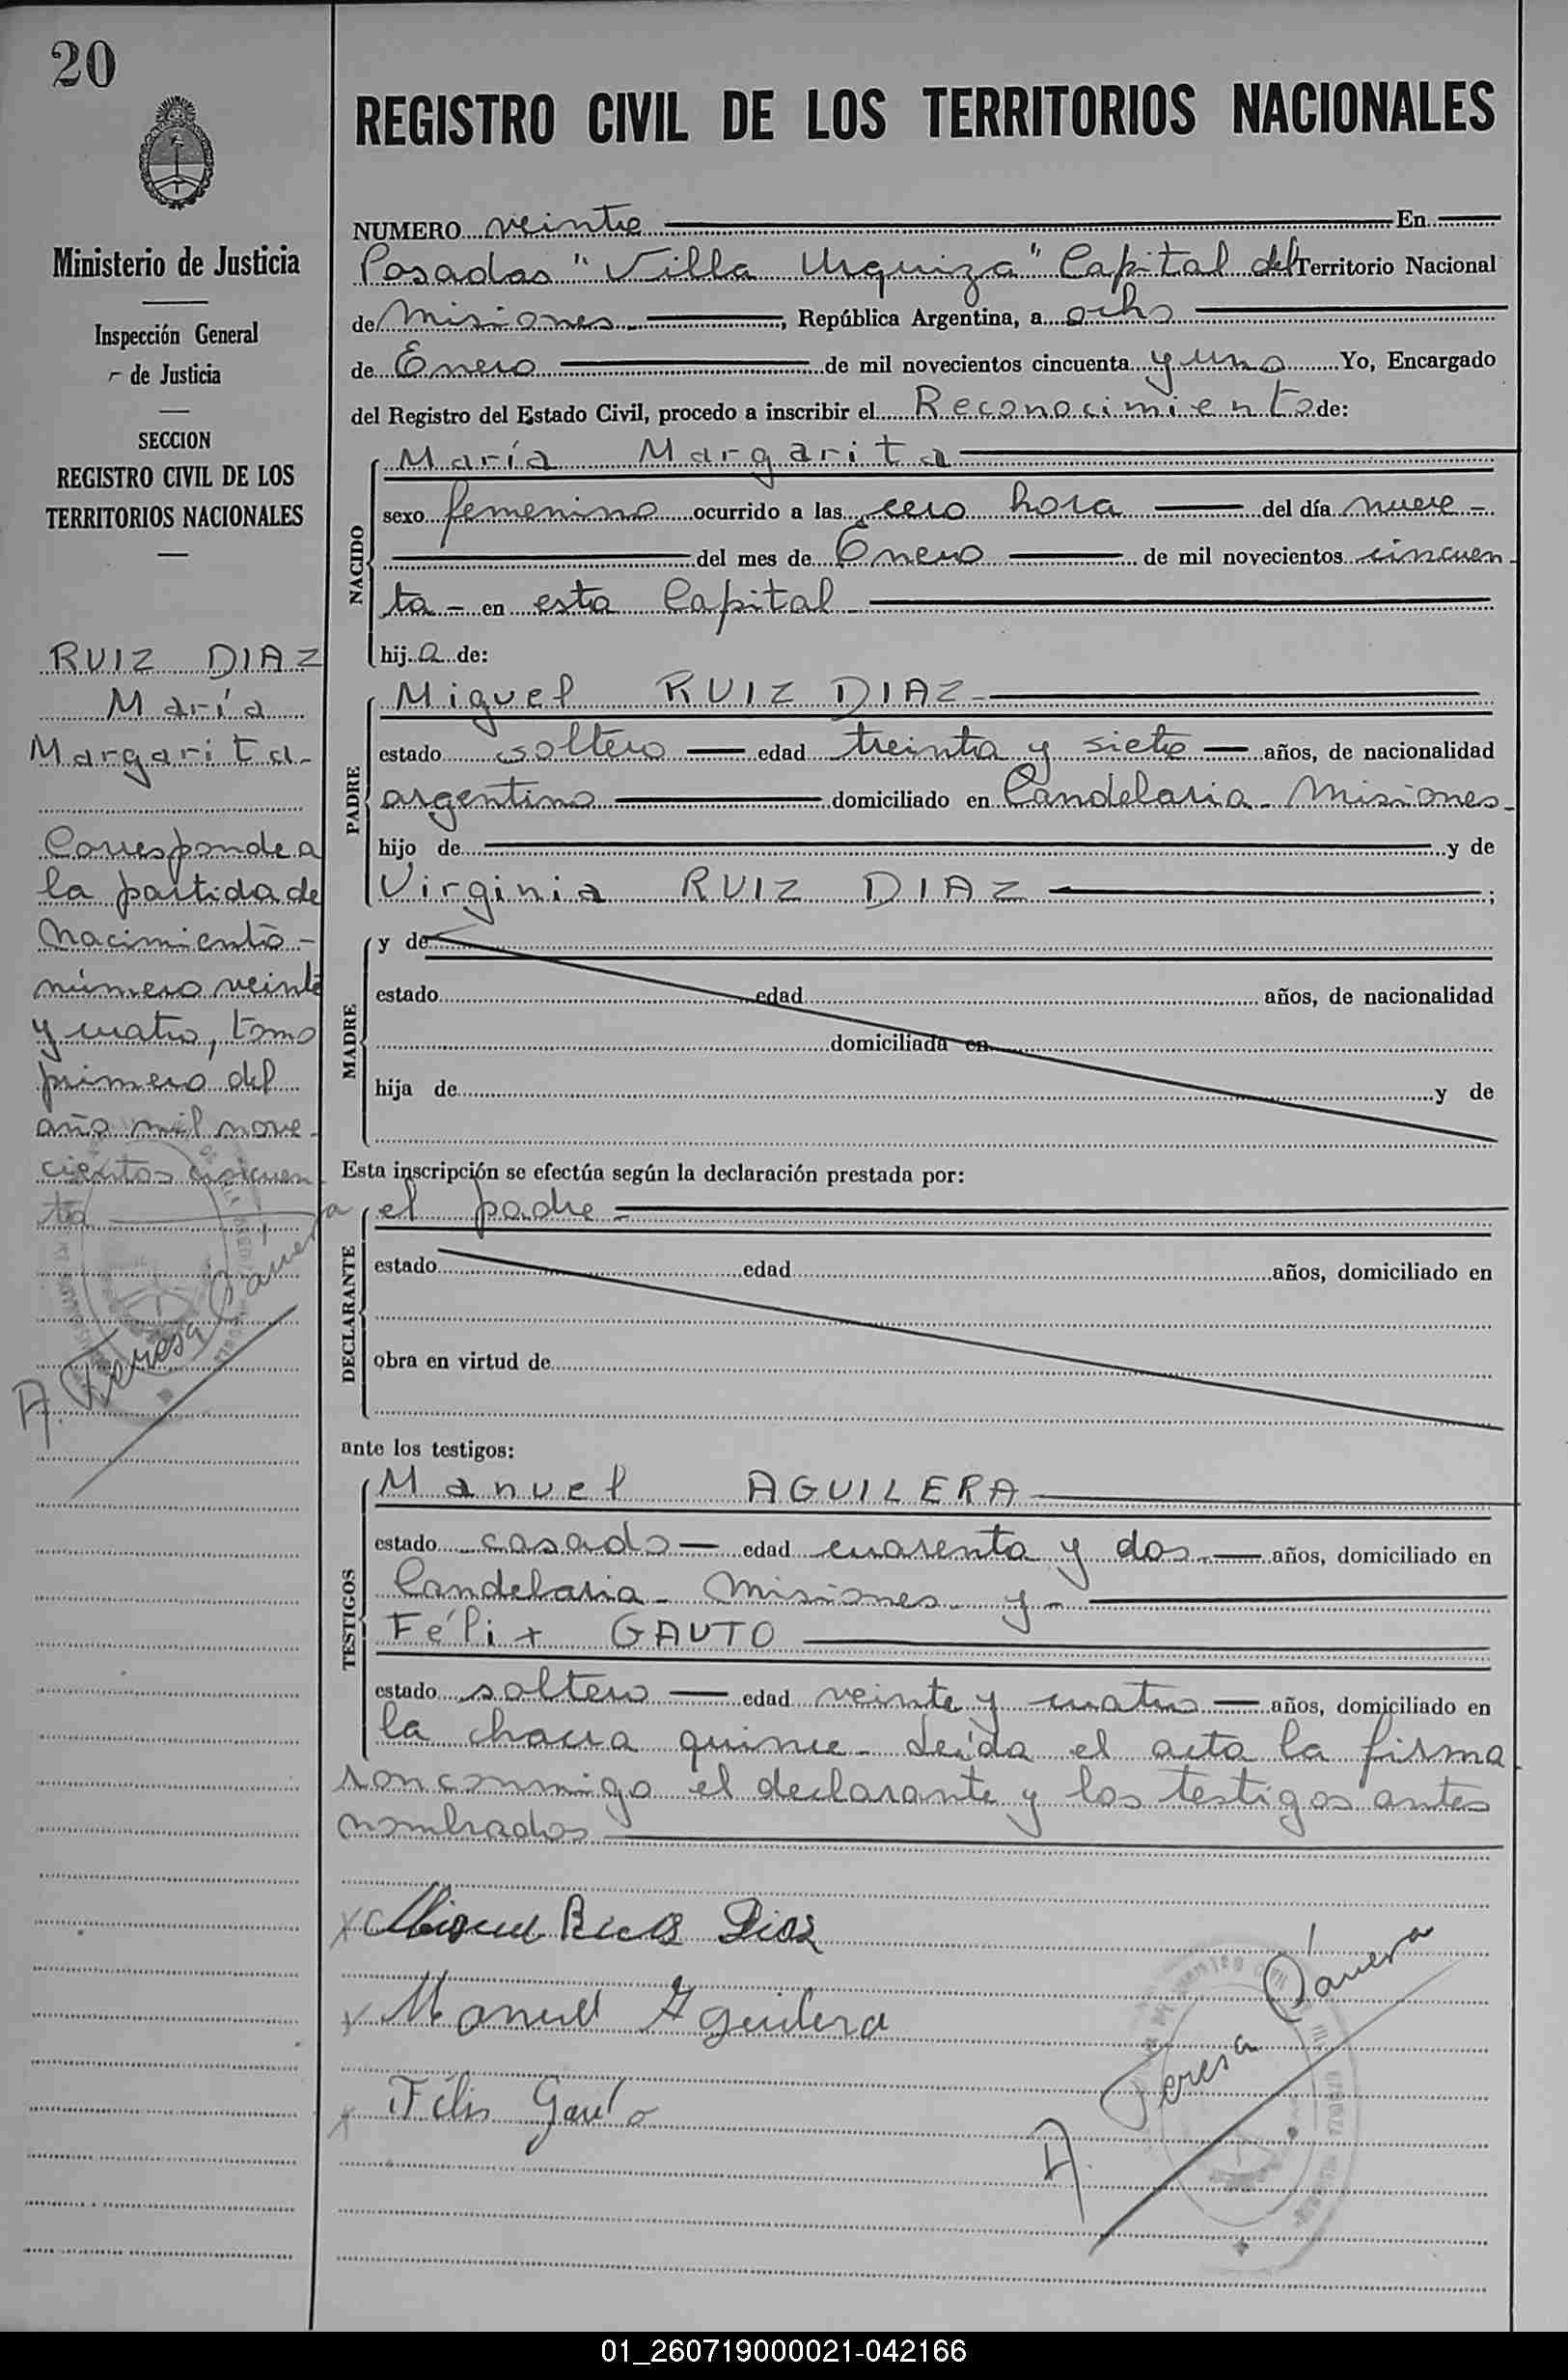 20
Ministerio de Justicia
Inspección General
de Justicia
SECCION
REGISTRO CIVIL DE LOS
TERRITORIOS NACIONALES
RUIZ DIAZ
María
Margarita-
Corresponde a
la partida de
Nacimiento-
número veinte
y cuatro, tomo
primero del
año mil nove-
cientos cincuen-
ta
A. Teresa
REGISTRO CIVIL DE LOS TERRITORIOS NACIONALES
NUMERO veinte En
Posadas "Villa Urquiza" Capital del Territorio Nacional
de Misiones, República Argentina, a ocho
de Enero de mil novecientos cincuenta y uno Yo, Encargado
del Registro del Estado Civil, procedo a inscribir el Reconocimiento de:
NACIDO
María Margarita
sexo femenino ocurrido a las cero hora del día nueve-
del mes de Enero de mil novecientos cincuen-
ta- en esta Capital-
hija de:
PADRE
Miguel RUIZ DIAZ-
estado soltero edad treinta y siete años, de nacionalidad
argentino domiciliado en Candelaria- Misiones-
hijo de y de
Virginia RUIZ DIAZ ;
MADRE
y de
estado edad años, de nacionalidad
domiciliada en
hija de y de
Esta inscripción se efectúa según la declaración prestada por:
DECLARANTE
el padre-
estado edad años, domiciliado en
obra en virtud de
ante los testigos:
TESTIGOS
Manuel AGUILERA
estado casado edad cuarenta y dos años, domiciliado en
Candelaria- Misiones- y-
Félix GAUTO
estado soltero edad veinte y cuatro años, domiciliado en
la chacra quince- Leída el acta la firma-
ron conmigo el declarante y los testigos antes
nombrados
Miguel Ruiz Diaz
Manuel Aguilera
Félis Gauto
A. Teresa
01_260719000021-042166